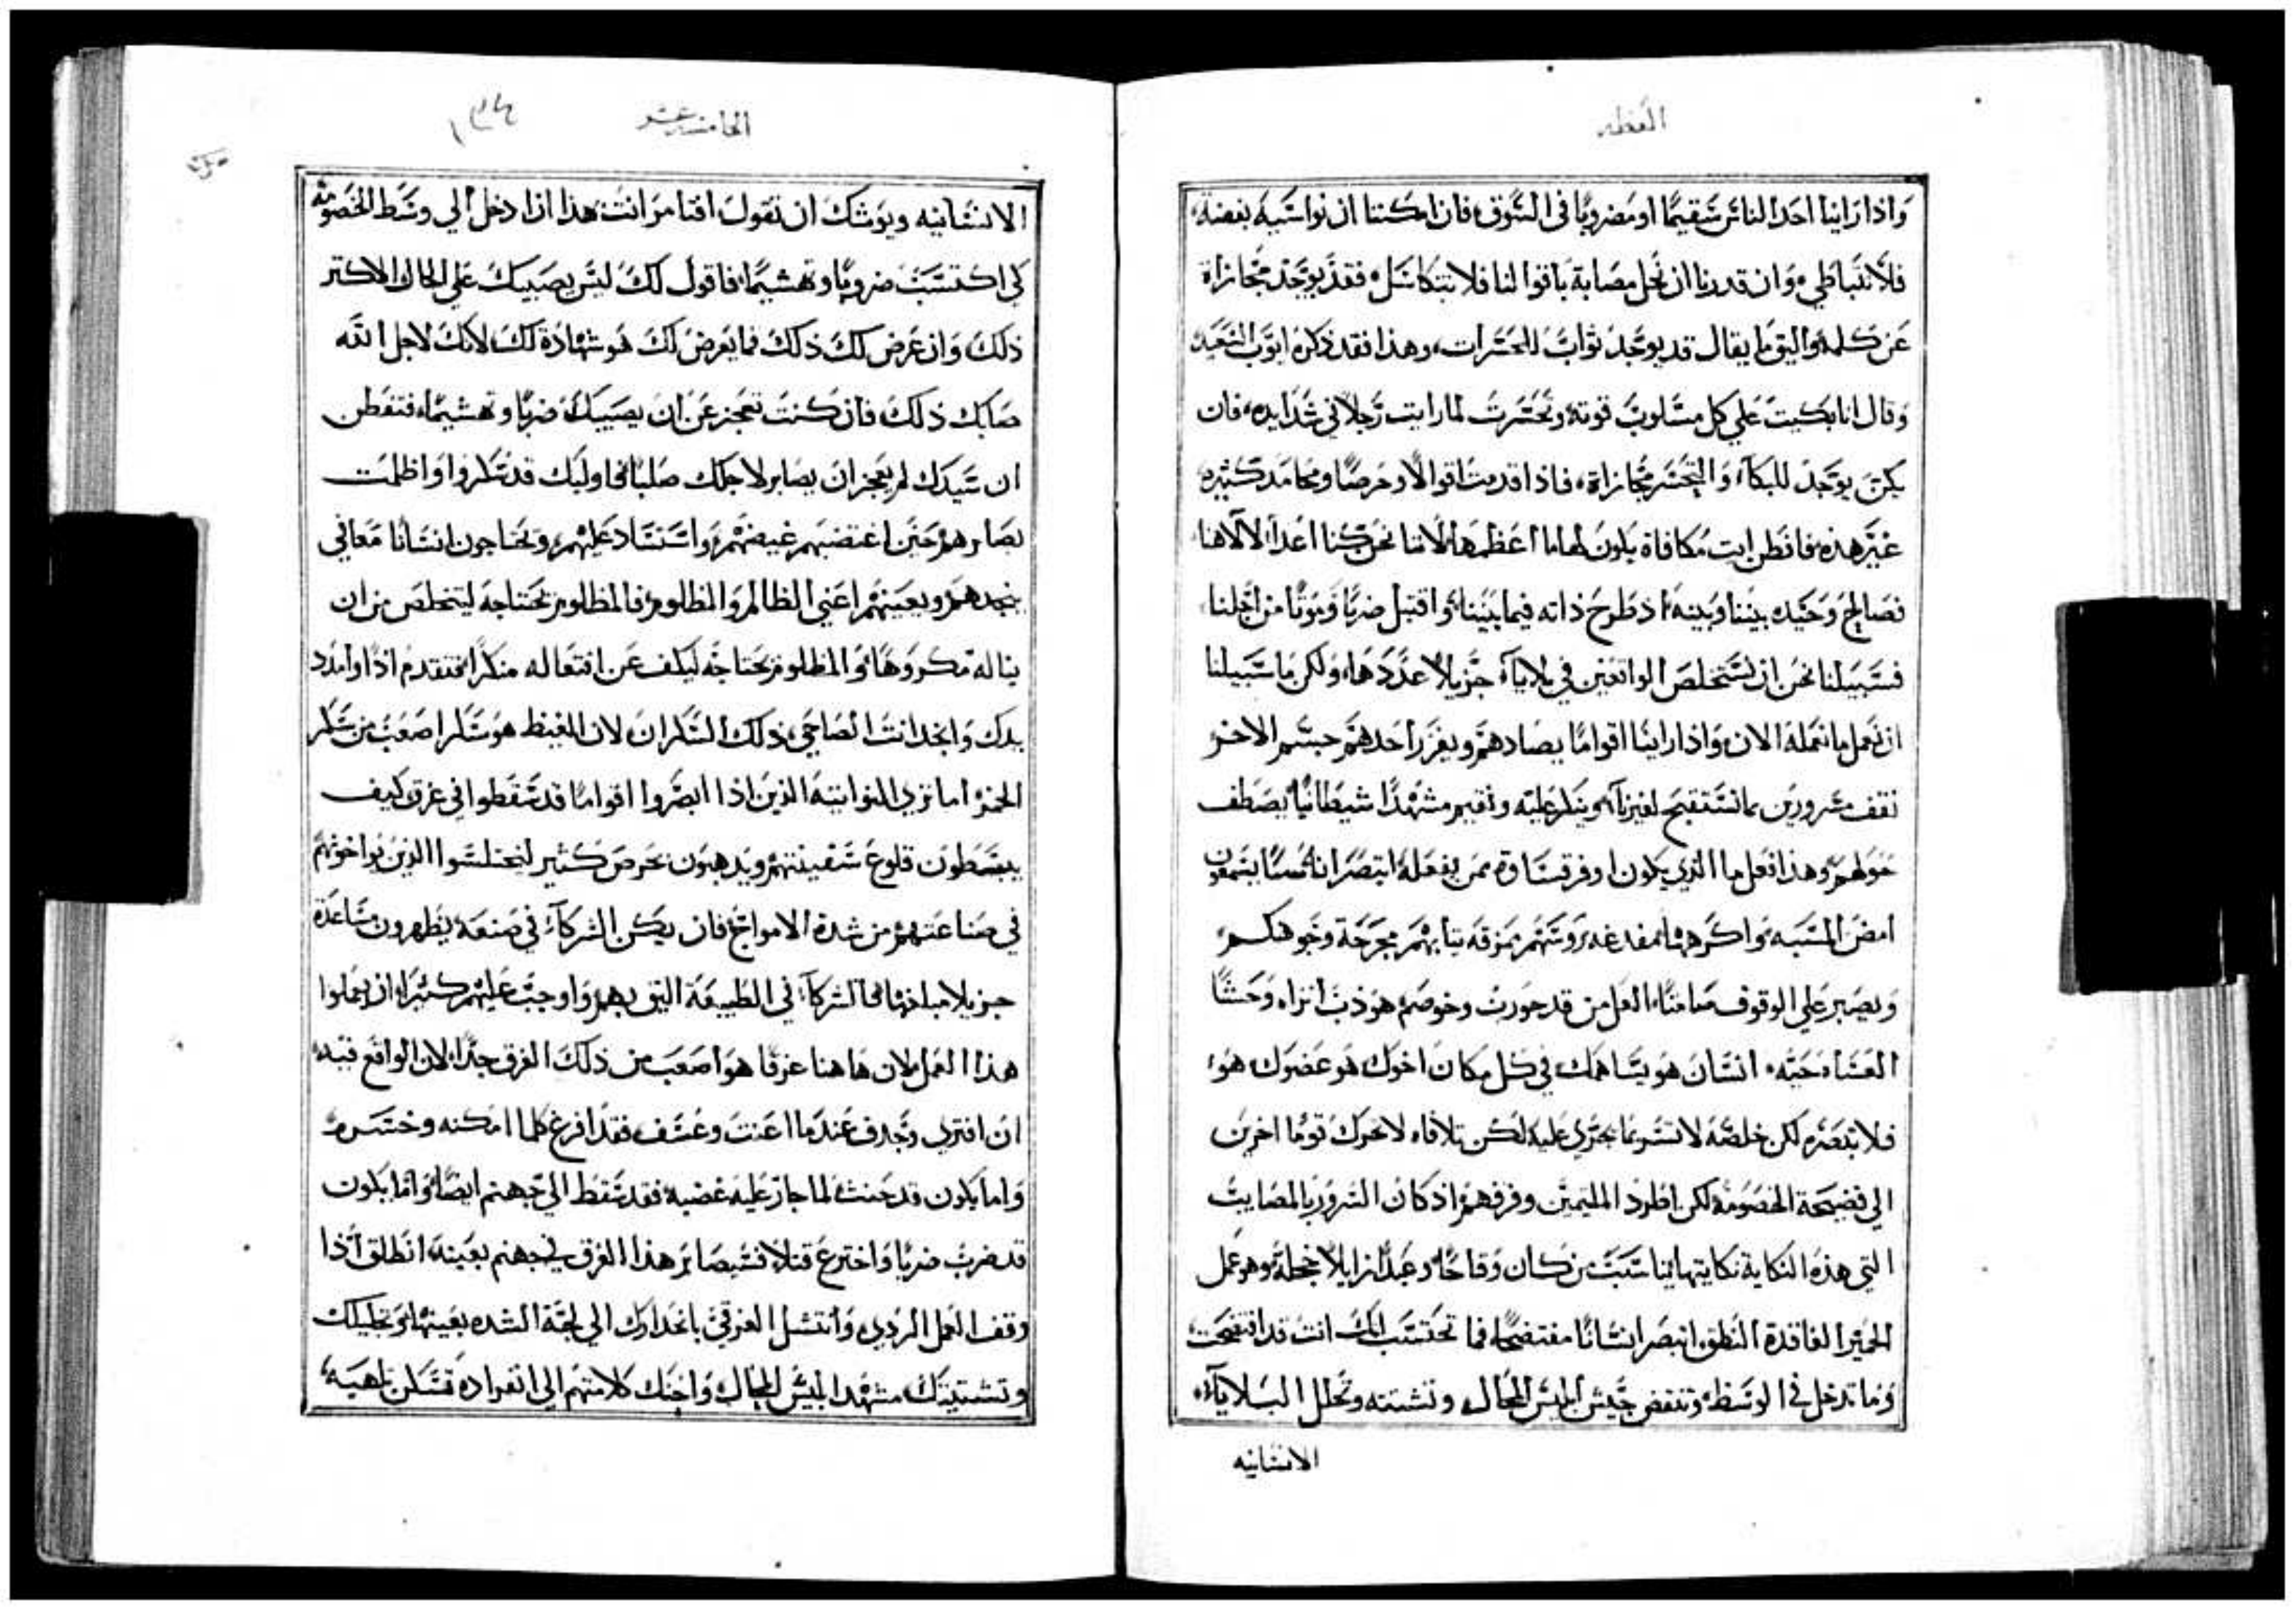 العظه
واذا راينا احد الناس سقيمًا او مضروبًا في السوق فان امكننا ان نواسيه بفضة
فلا نتباطي وان قدرنا ان نحل مصابة باقوالنا فلا نتكاسل فقد يوجد مجازاة
عن كلمة واليق ما يقال قد يوجد ثواب للحسرات وهذا فقد ذكره ايوب السعيد
وقال انا بكيت علي كل مسلوب قوته وتحسرت لما رايت رجلًا في شدايده فان
يكن يوجد للبكاء والتحسر مجازاة فاذا قدمت اقوالًا وحرصًا ومحامد كثيره
غير هذه فافطن ايت مكافاة يكون لها ما اعظمها لاننا نحن كنا اعداء لالاهنا
فصالح وحيده بيننا وبينه اذ طرح ذاته فيما بيننا واقتبل ضربًا وموتًا من اجلنا
فسبيلنا نحن ان نستخلص الواقعين في بلايا جزيلًا عددها ولكن ما سبيلنا
ان نعمل ما نعمله الان واذا راينا اقوامًا يصادهم ويفزر احدهم جسم الاخر
نقف مسرورين بما نستقبح لغيرنا وينكر عليه ونقيم مشهدًا شيطانيًا يصطف
حولهم وهذا فعل ما الذي يكون اوفر قساوة ممن يفعله ابتصر اناسًا يشتمون
امض المسبه واكرهها مفدغه روسهم ممزقه ثيابهم مجرحة وجوهكم
وتصبر علي الوقوف صامتًا العل من قد حورب وخوصم هو ذب اتراه وحشًا
العساه حيه انسان هو يساهمك في كل مكان اخوك هو عضوك هو
فلا تبصره لكن خلصه لا تسر بما يجري عليه لكن تلافاه لا تحرك قومًا اخرين
الي فضيحة الخصومه لكن اطرد الملتيمين وفرقهم اذ كان السرور بالمصايب
التي هذه النكاية نكايتها يناسب من كان وقاحًا وعبدًا زايلًا خجله وهو عمل
الحمير الفاقدة النطق ابتصر انسانًا مفتضحًا فما تحتسب انك انت قد افتضحت
وما تدخل في الوسط وتنقض جيش ابليس المحال وتشتته وتحلل البلايا
الانسانيه
الخامسه عشر
الانسانيه ويوشك ان تقول افتامر انت هذا ان ادخل الي وسط الخصومه
كي اكتسب ضروبًا وتهشيمًا فاقول لك ليس يصيبك علي الحال الاكتر
ذلك وان عرض لك ذلك فما يعرض لك هو شهادة لك لانك لاجل الله
صابك ذلك فان كنت تعجز عن ان يصيبك ضربًا وتهشيمًا فتفطن
ان سيدك لم يعجز ان يصابر لاجلك صلبًا فاوليك قد سكروا واظلمت
بصايرهم حين اغتصبهم غيضهم واستساد عليهم وتحتاجون انسانًا معافي
ينجدهم ويعينهم اعني الظالم والمظلوم فالمظلوم يحتاجه ليتخلص من ان
يناله مكروهًا والمظلوم يحتاجه ليكف عن افتعاله منكرًا فتقدم اذًا وامدد
يدك وانجد انت الصاحي ذلك السكران لان الغيظ هو سكرًا اصعب من سكر
الخمر اما تري النواتيه الذين اذا ابصروا اقوامًا قد سقطوا في غرق كيف
يبسطون قلوع سفينتهم ويذهبون بحرص كثير لينتشلوا الذين يواخونهم
في صناعتهم من شدة الامواج فان يكن الشركاء في صنعة يظهرون مساعدة
جزيلًا مبلغها فالشركاء في الطبيعة اليق بهم واوجب عليهم كثيرًا ان يعملوا
هذا العمل لان هاهنا غرقًا هو اصعب من ذلك الغرق جدًا لان الواقع فيه
ان افتري وجدف عندما اعنت وعسف فقد افرغ كلما امكنه وخسره
واما يكون قد حنث لما جاز عليه غضبه فقد سقط الي جهنم ايضًا واما يكون
قد ضرب ضربًا واخترع قتلًا فسيصابر هذا الغرق في جهنم بعينه انطلق اذا
وقف العمل الردي وانتشل الغرقي بانحدارك الي لجة الشده بعينها وتحليلك
وتشتيتك مشهد ابليس المحال واجتك كلا منهم الي انفراده فتسكن تلهيه